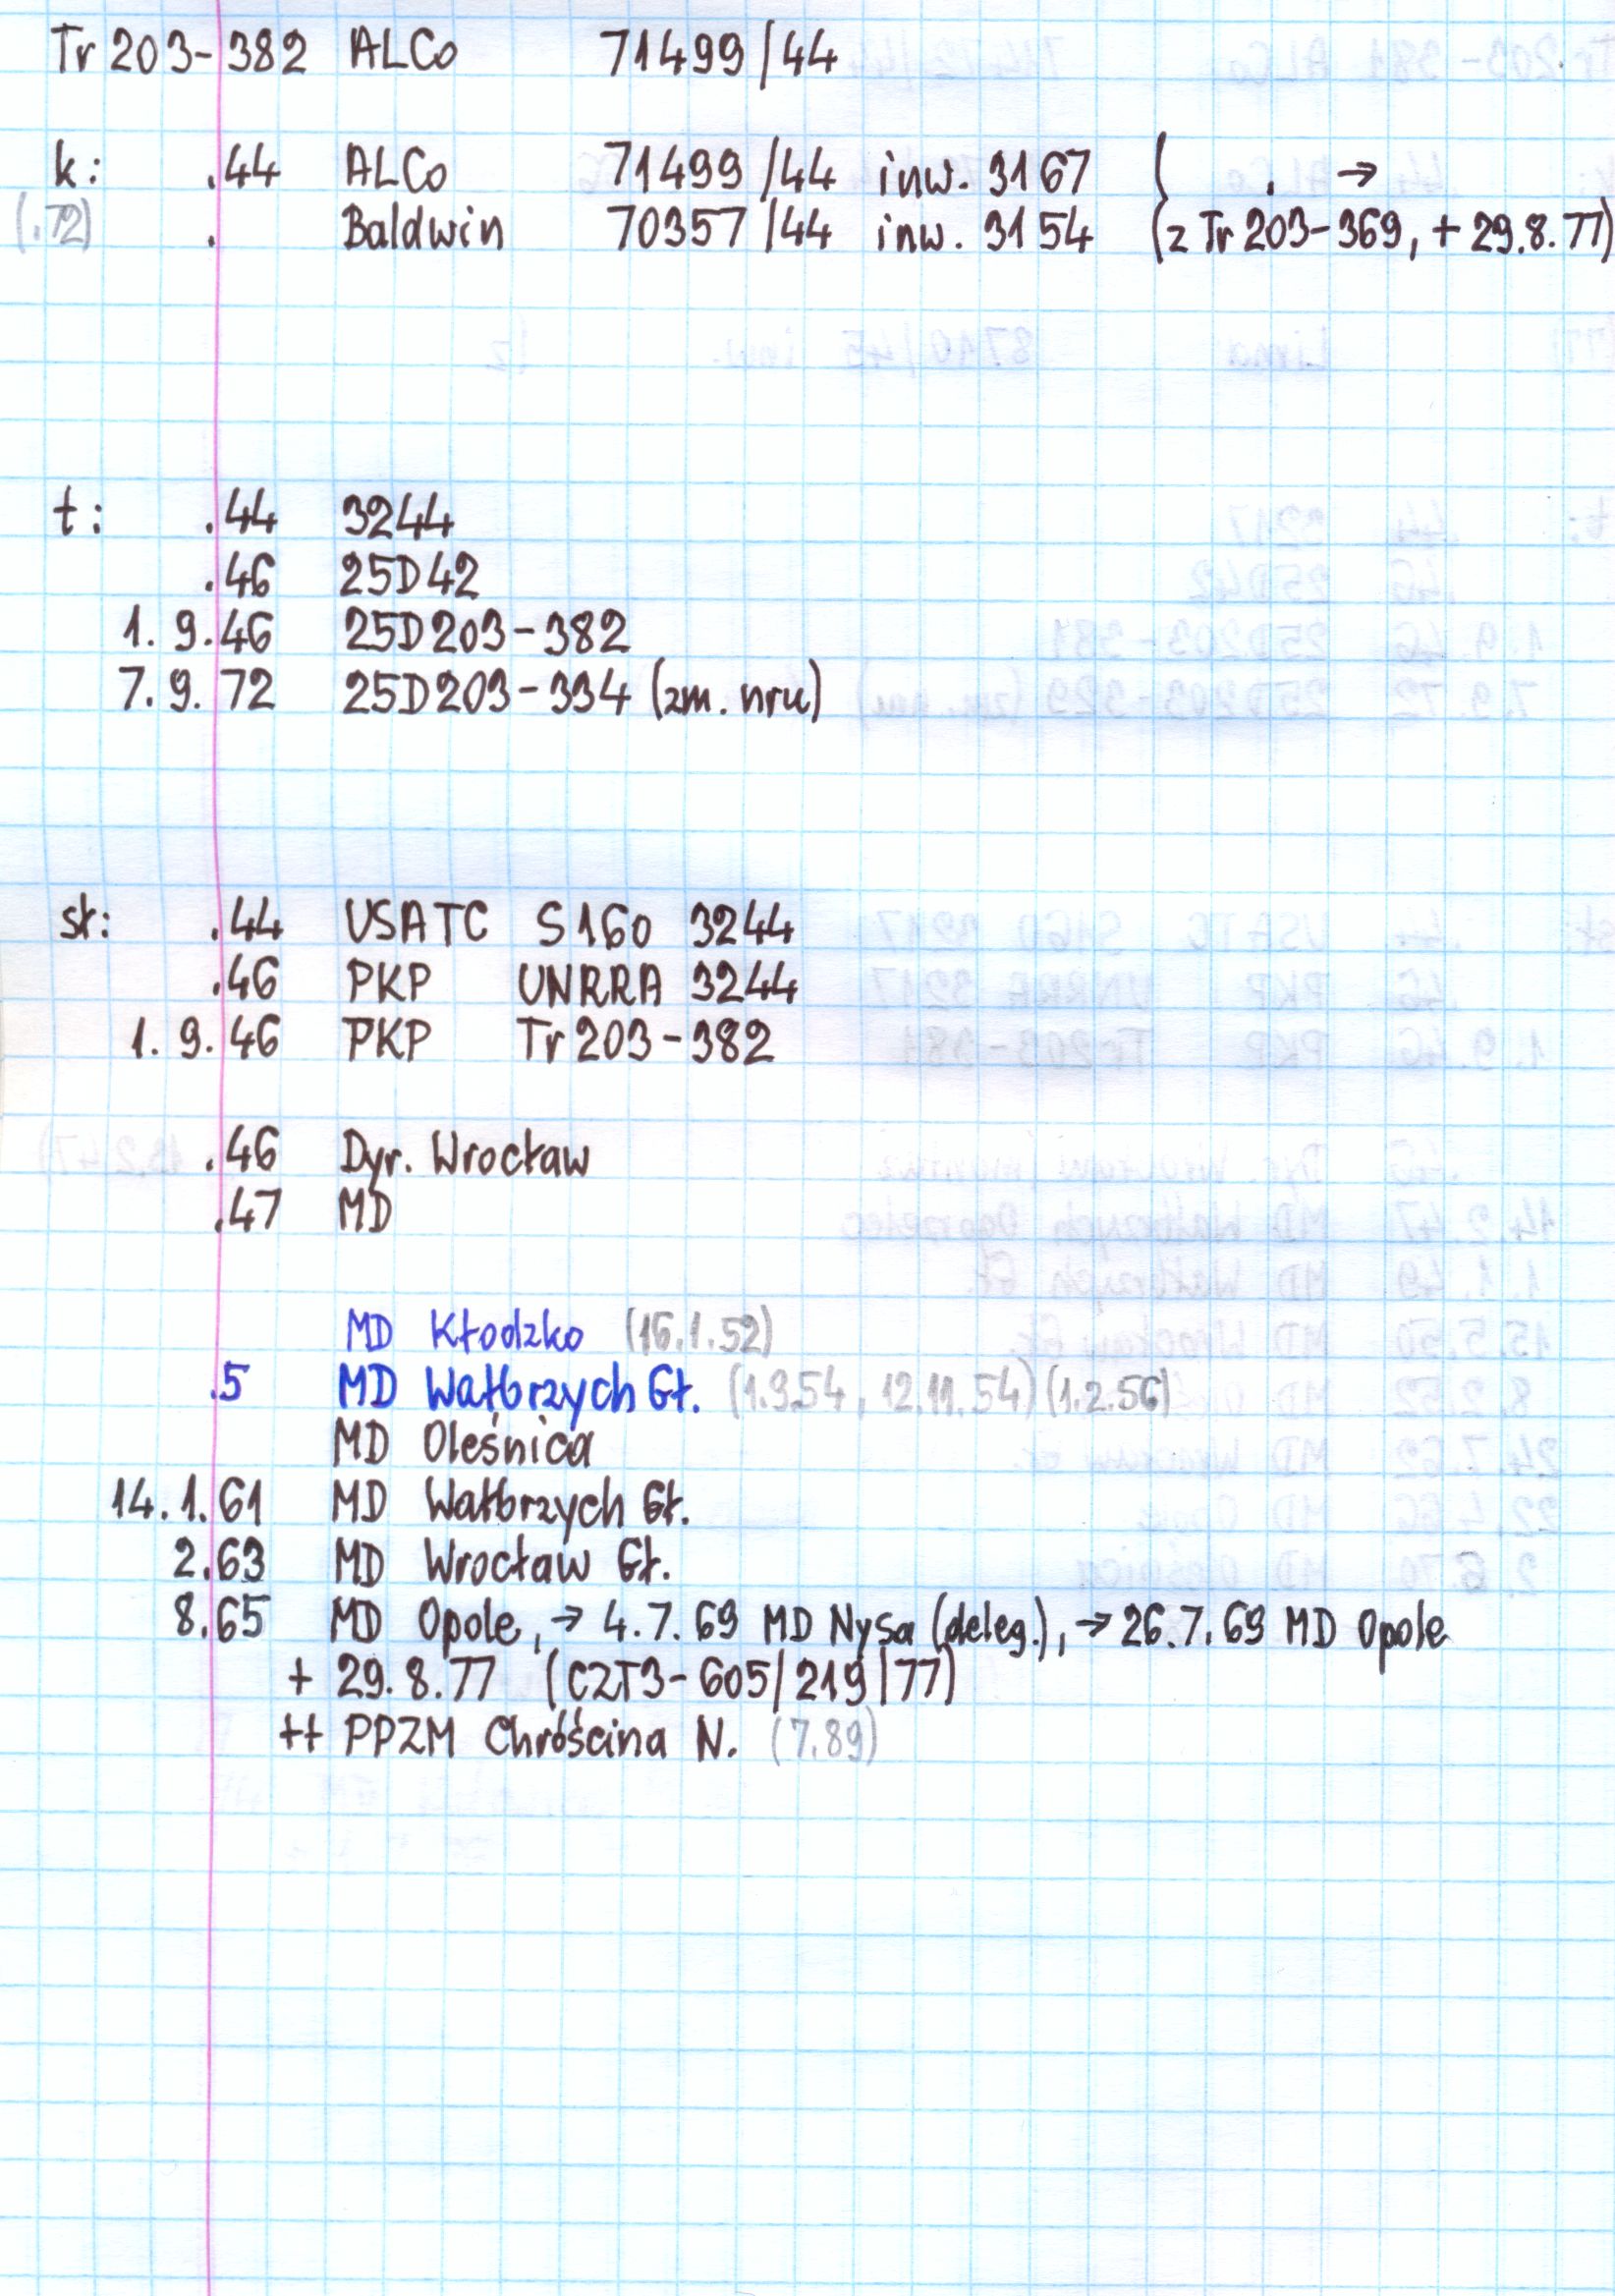 Tr 203-382 ALCo 71499/44
k: .44 ALCo 71499/44 inw. 3167 ( . →
(.72) . Baldwin 70357/44 inw. 3154 (z Tr 203-369, + 29.8.77)
t: .44 3244
.46 25D42
1. 9.46 25D203-382
7. 9. 72 25D203-334 (zm. nru)
st: .44 USATC S160 3244
.46 PKP UNRRA 3244
1. 9. 46 PKP Tr 203-382
.46 Dyr. Wrocław
.47 MD
MD Kłodzko (16.1.52)
.5 MD Wałbrzych Gł. (1.9.54, 12.11.54) (1.2.56)
MD Oleśnica
14.1.61 MD Wałbrzych Gł.
2.63 MD Wrocław Gł.
8.65 MD Opole, → 4.7.69 MD Nysa (deleg.), → 26.7.69 MD Opole
+ 29.8.77 (CZT3-605/219/77)
++ PPZM Chróścina N. (7.89)